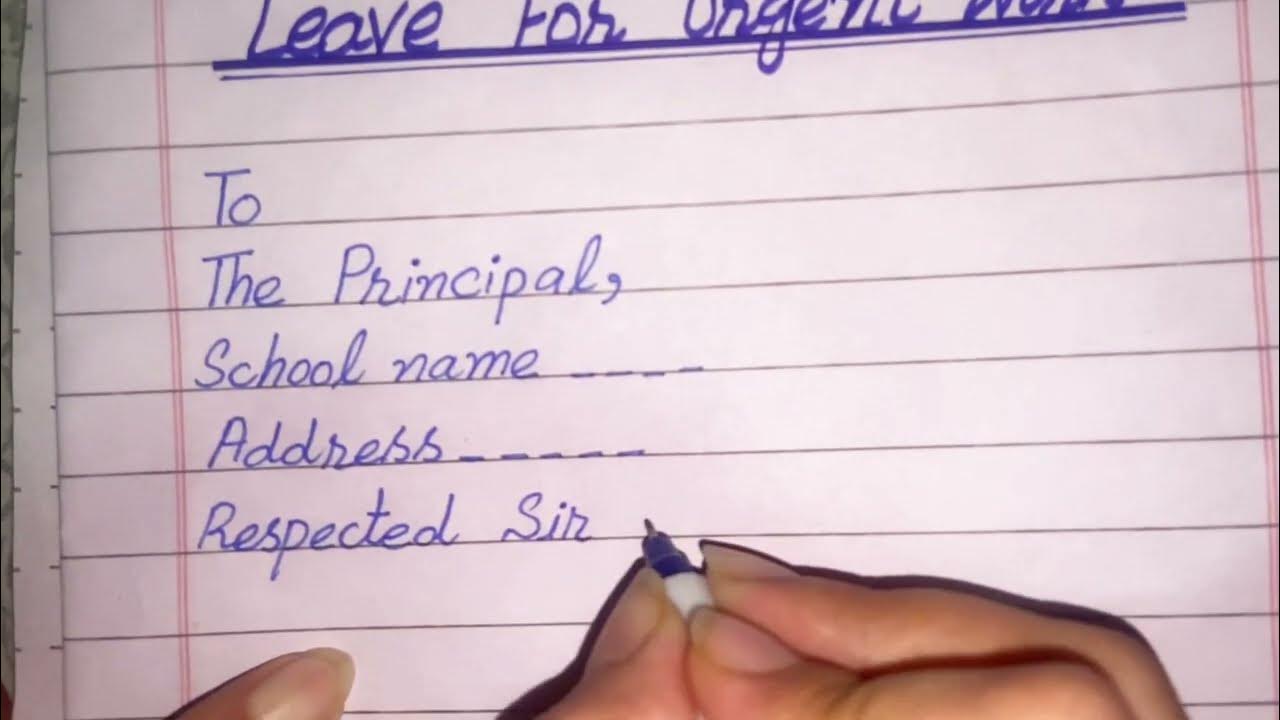 Leave For Urgent Work
To
The Principal,
School name ----
Address-----
Respected Sir